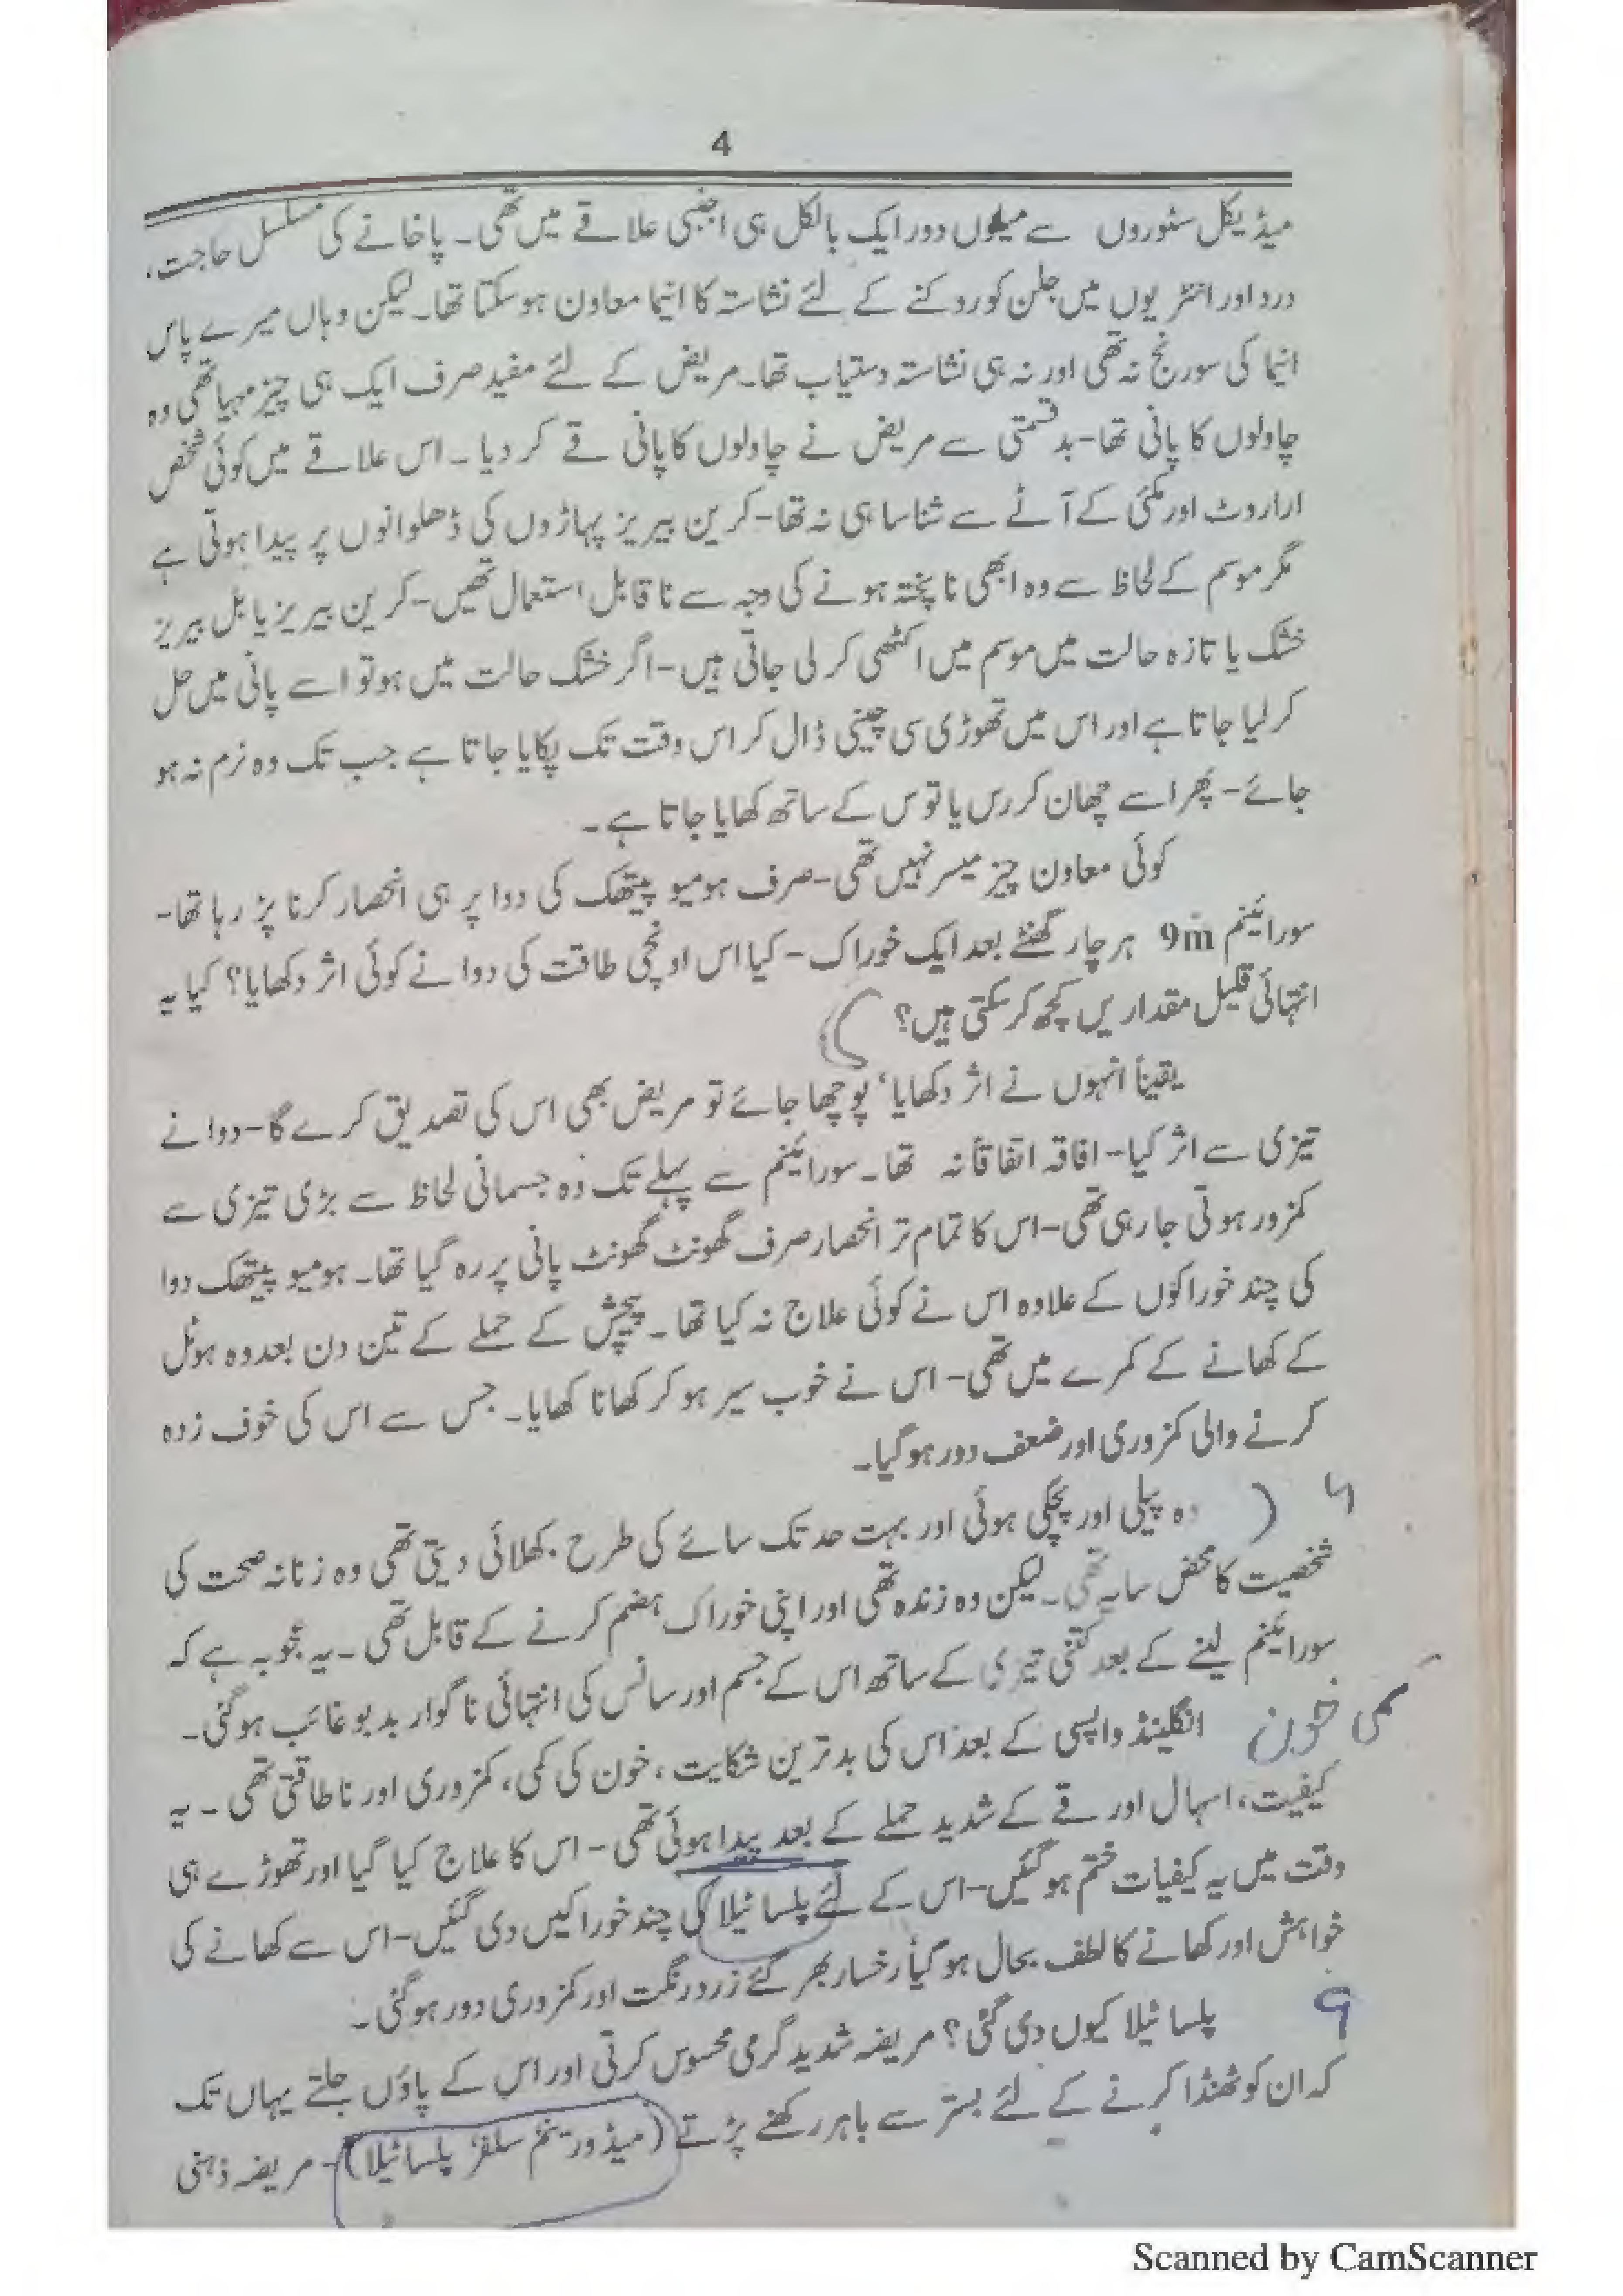 4
میڈیکل سٹوروں سے میلوں دور ایک بالکل ہی اجنبی علاقے میں تھی۔ پاخانے کی مسلسل حاجت،
درد اور انتڑیوں میں جلن کو روکنے کے لئے نشاستہ کا انیما معاون ہو سکتا تھا۔ لیکن وہاں میرے پاس
انیما کی سورنج نہ تھی اور نہ ہی نشاستہ دستیاب تھا۔ مریض کے لئے مفید صرف ایک ہی چیز مہیا تھی وہ
چاولوں کا پانی تھا- بدقسمتی سے مریض نے چاولوں کا پانی قے کر دیا۔ اس علاقے میں کوئی شخص
اراروٹ اور مکئی کے آٹے سے شناسا ہی نہ تھا- کرین بیریز پہاڑوں کی ڈھلوانوں پر پیدا ہوتی ہے
مگر موسم کے لحاظ سے وہ ابھی ناپختہ ہونے کی وجہ سے ناقابل استعمال تھیں- کرین بیریز یا بل بیریز
خشک یا تازہ حالت میں موسم میں اکٹھی کر لی جاتی ہیں- اگر خشک حالت میں ہو تو اسے پانی میں حل
کر لیا جاتا ہے اور اس میں تھوڑی سی چینی ڈال کر اس وقت تک پکایا جاتا ہے جب تک وہ نرم نہ ہو
جائے- پھر اسے چھان کر رس یا توس کے ساتھ کھایا جاتا ہے۔
کوئی معاون چیز میسر نہیں تھی- صرف ہومیو پیتھک کی دوا پر ہی انحصار کرنا پڑ رہا تھا-
سورائینم 9m ہر چار گھنٹے بعد ایک خوراک- کیا اس اونچی طاقت کی دوا نے کوئی اثر دکھایا؟ کیا یہ
انتہائی قلیل مقداریں کچھ کر سکتی ہیں؟
یقیناً انہوں نے اثر دکھایا، پوچھا جائے تو مریض بھی اس کی تصدیق کرے گا- دوا نے
تیزی سے اثر کیا- افاقہ اتفاقاً نہ تھا۔ سورائینم سے پہلے تک وہ جسمانی لحاظ سے بڑی تیزی سے
کمزور ہوتی جا رہی تھی- اس کا تمام تر انحصار صرف گھونٹ گھونٹ پانی پر رہ گیا تھا۔ ہومیو پیتھک دوا
کی چند خوراکوں کے علاوہ اس نے کوئی علاج نہ کیا تھا۔ پیچش کے حملے کے تین دن بعد وہ ہوٹل
کے کھانے کے کمرے میں تھی- اس نے خوب سیر ہو کر کھانا کھایا۔ جس سے اس کی خوف زدہ
کرنے والی کمزوری اور ضعف دور ہو گیا۔
وہ پیلی اور پچکی ہوئی اور بہت حد تک سائے کی طرح دکھلائی دیتی تھی وہ زنانہ صحت کی
شخصیت کا محض سایہ تھی۔ لیکن وہ زندہ تھی اور اپنی خوراک ہضم کرنے کے قابل تھی۔ یہ عجوبہ ہے کہ
سورائینم لینے کے بعد کتنی تیزی کے ساتھ اس کے جسم اور سانس کی انتہائی ناگوار بدبو غائب ہو گئی۔
کمی خون انگلینڈ واپسی کے بعد اس کی بدترین شکایت، خون کی کمی، کمزوری اور ناطاقتی تھی۔ یہ
کیفیت، اسہال اور قے کے شدید حملے کے بعد پیدا ہوئی تھی- اس کا علاج کیا گیا اور تھوڑے ہی
وقت میں یہ کیفیات ختم ہو گئیں- اس کے لئے پلساٹیلا کی چند خوراکیں دی گئیں- اس سے کھانے کی
خواہش اور کھانے کا لطف بحال ہو گیا رخسار بھر گئے زرد رنگت اور کمزوری دور ہو گئی۔
پلساٹیلا کیوں دی گئی؟ مریضہ شدید گرمی محسوس کرتی اور اس کے پاؤں جلتے یہاں تک
کہ ان کو ٹھنڈا کرنے کے لئے بستر سے باہر رکھنے پڑتے (میڈورینم سلفر پلساٹیلا)- مریضہ ذہنی
Scanned by CamScanner